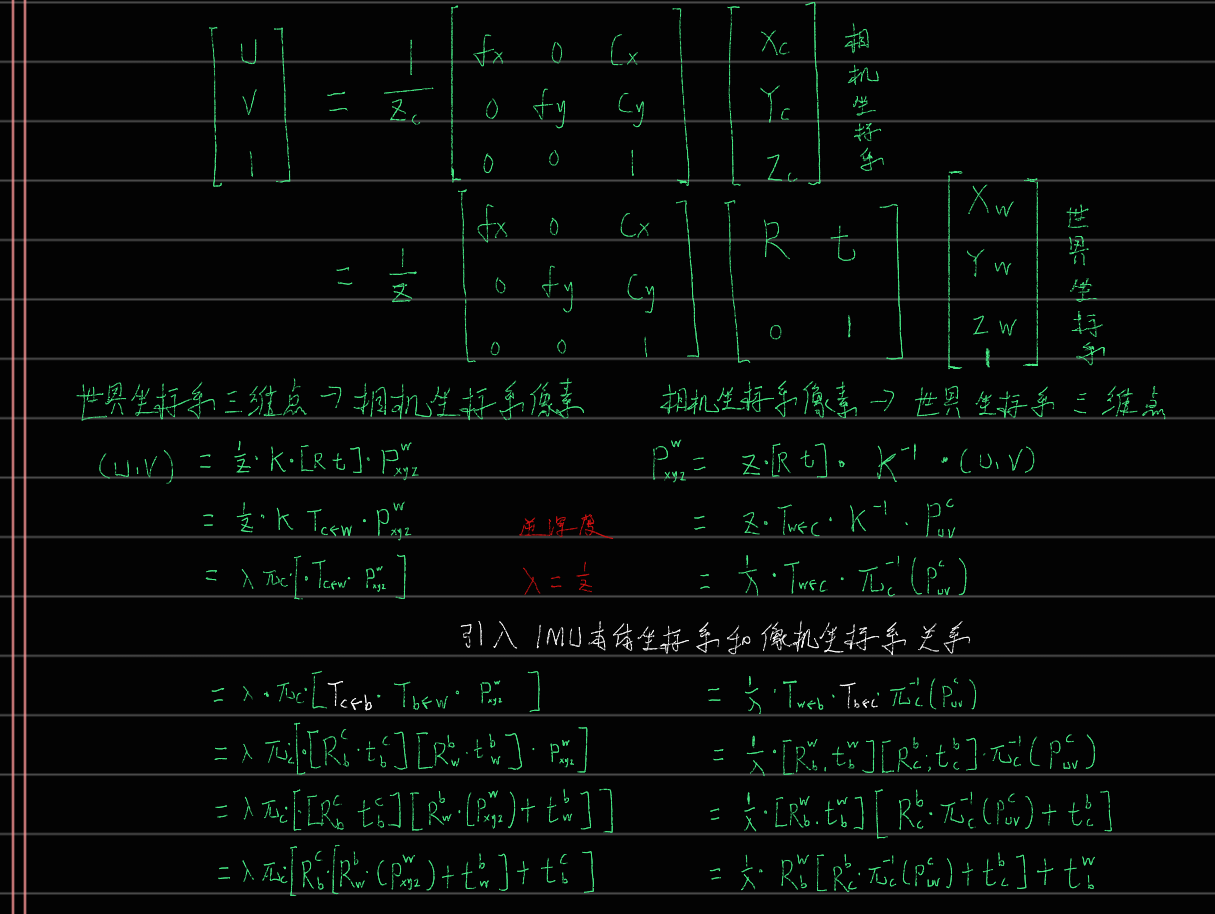 [U V 1] = 1/Zc [fx 0 Cx; 0 fy Cy; 0 0 1] [Xc Yc Zc] 相机坐标系
= 1/Z [fx 0 Cx; 0 fy Cy; 0 0 1] [R t; 0 1] [Xw Yw Zw 1] 世界坐标系
世界坐标系三维点 → 相机坐标系像素
(U,V) = 1/Z · K · [R t] · P^w_xyz
= 1/Z · K T_c←w · P^w_xyz
= λ π_c [· T_c←w · P^w_xyz]
相机坐标系像素 → 世界坐标系三维点
P^w_xyz = Z·[R t] · K^-1 · (U,V)
= Z · T_w←c · K^-1 · P^c_uv
= 1/λ · T_w←c · π_c^-1 (P^c_uv)
逆深度
λ = 1/Z
引入 IMU本体坐标系和像机坐标系关系
= λ · π_c · [T_c←b · T_b←w · P^w_xyz]
= λ π_c · [·[R^c_b · t^c_b] [R^b_w · t^b_w] · P^w_xyz]
= λ π_c · [[R^c_b t^c_b] [R^b_w · (P^w_xyz) + t^b_w]]
= λ π_c · [R^c_b · [R^b_w · (P^w_xyz) + t^b_w] + t^c_b]
= 1/λ · T_w←b · T_b←c · π_c^-1 (P^c_uv)
= 1/λ · [R^w_b, t^w_b] [R^b_c, t^b_c] · π_c^-1 (P^c_uv)
= 1/λ · [R^w_b, t^w_b] [R^b_c · π_c^-1 (P^c_uv) + t^b_c]
= 1/λ · R^w_b [R^b_c · π_c^-1 (P^c_uv) + t^b_c] + t^w_b